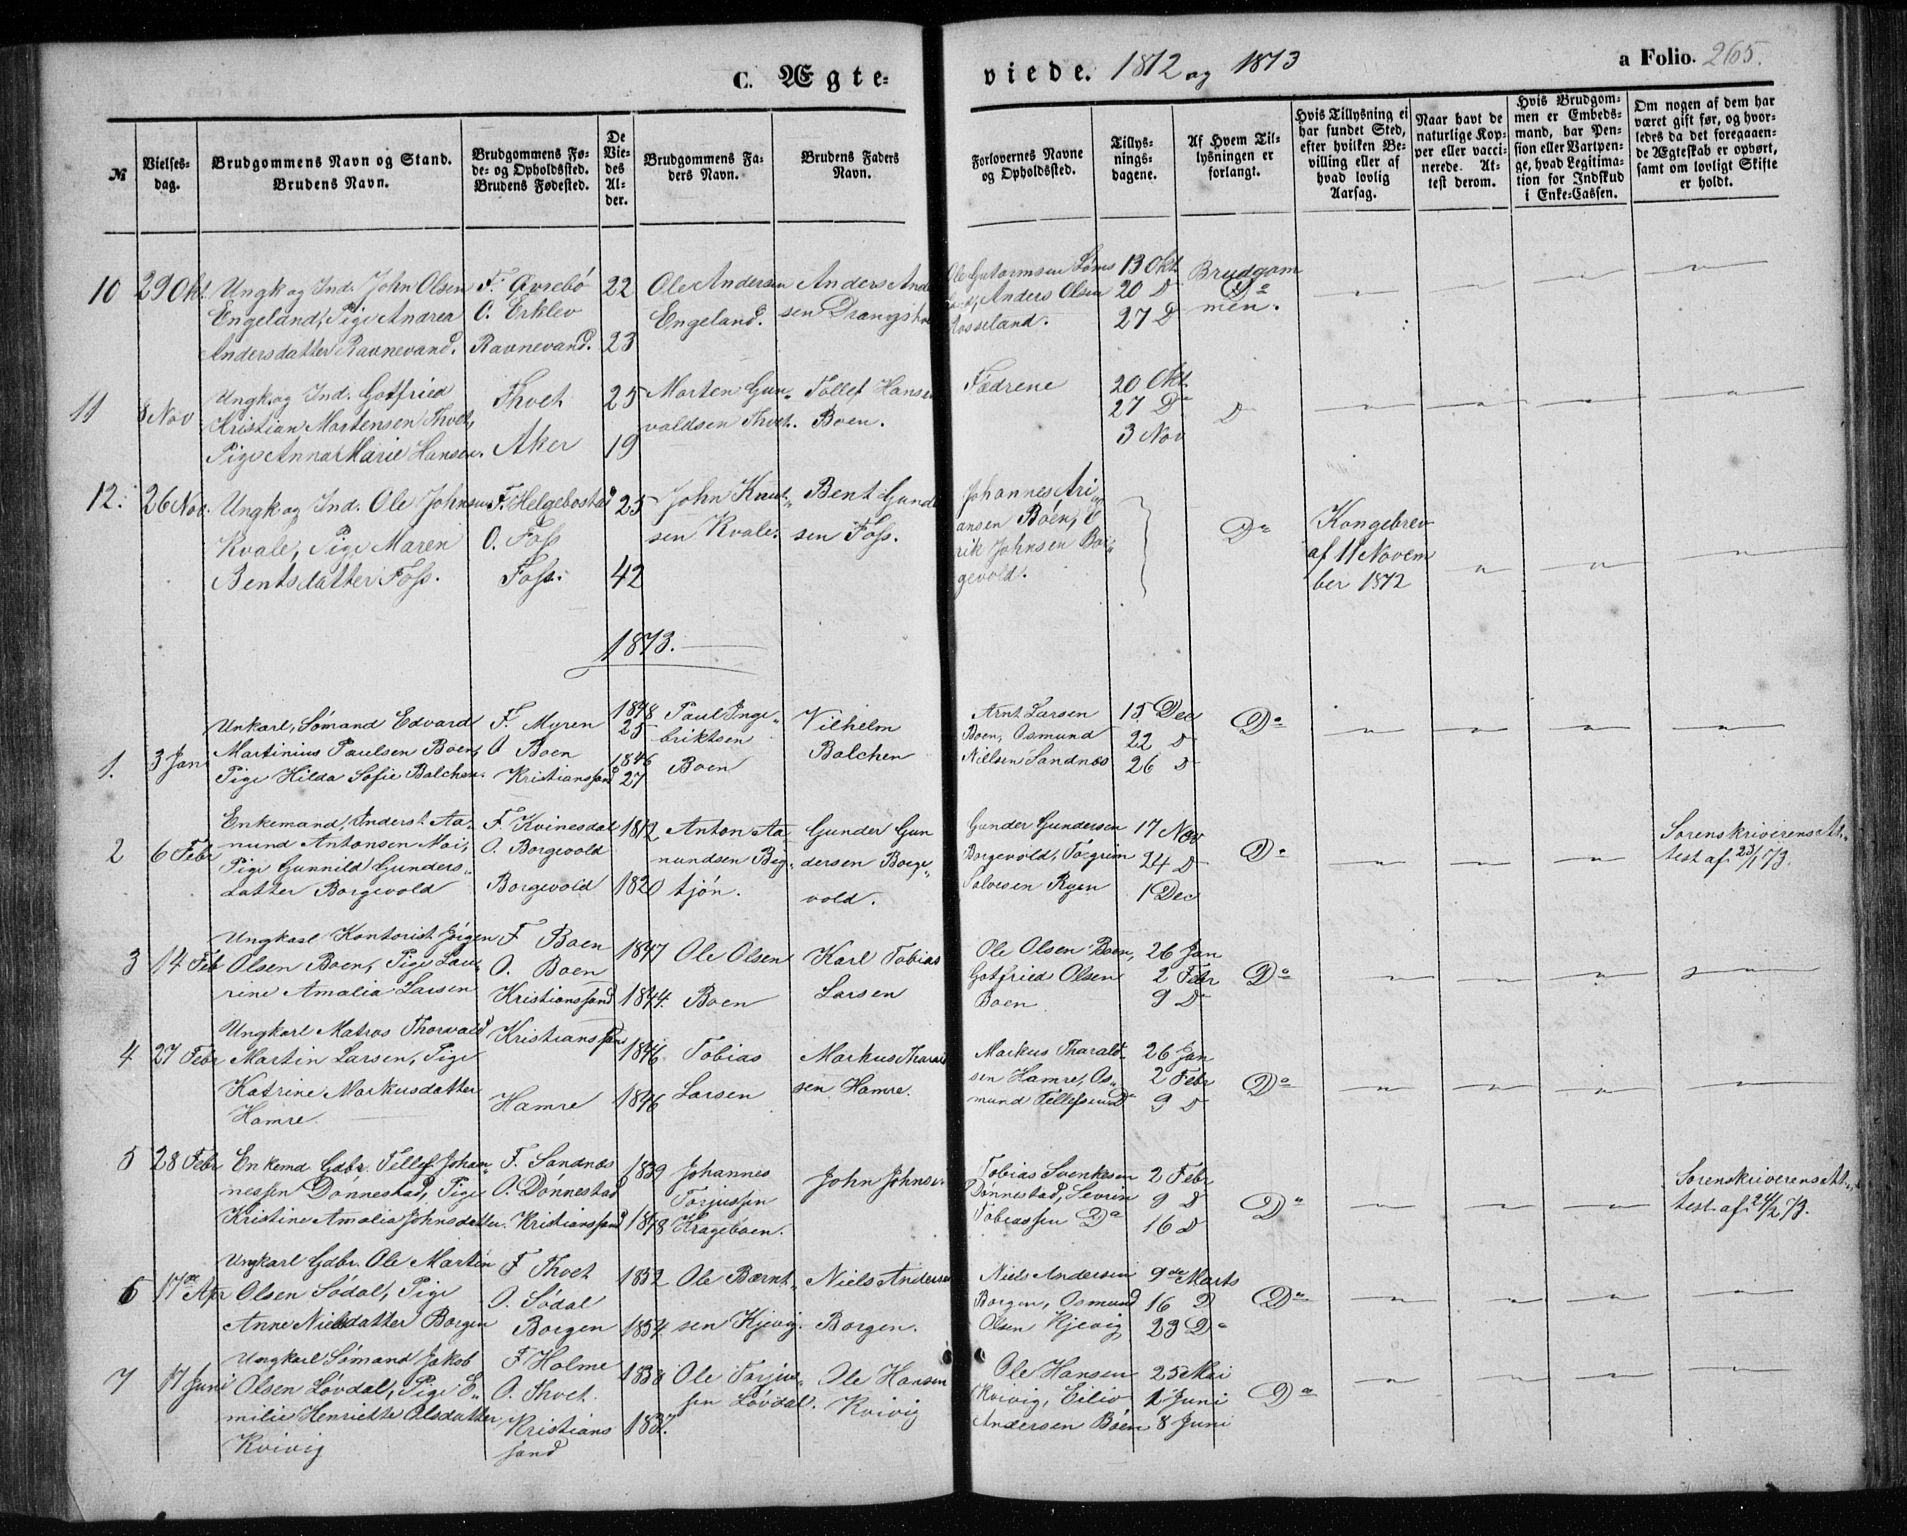 C. Ægte-
viede. 1872 og 1873
a Folio. 265.
№
Vielses-
dag.
Brudgommens Navn og Stand.
Brudens Navn.
Brudgommens Fø-
de- og Opholdssted.
Brudens Fødested.
De
Vie-
des
Al-
der.
Brudgommens Fa-
ders Navn.
Brudens Faders
Navn.
Forlovernes Navne
og Opholdssted.
Tillys-
nings-
dagene.
Af Hvem Til-
lysningen er
forlangt.
Hvis Tillysning ei
har fundet Sted,
efter hvilken Be-
villing eller af
hvad lovlig
Aarsag.
Naar havt de
naturlige Kop-
per eller vacci-
nerede. At-
test derom.
Hvis Brudgom-
men er Embeds-
mand, har Pen-
sion eller Vartpen-
ge, hvad Legitima-
tion for Indskud
i Enke-Cassen.
Om nogen af dem har
været gift før, og hvor-
ledes da det foregaaen-
de Ægteskab er ophørt,
samt om lovligt Skifte
er holdt.
10
29 Okt.
Ungk og Ind. John Olsen
Engeland, Pige Andrea
Andersdatter Ravnevand.
F. Øvrebö
O. Erklev
Ravnevand.
22
23
Ole Andersen
Engeland.
Anders And
sen Drangsho
Ole Guttormsen
Anders Olsen
Rosseland.
13 Okt
20 D
27 D
Brudgom
Do
men.
11
8 Nov
Ungk. og Ind. Gotfried
Kristian Martensen Thvet,
Pige Anna Marie Hansen.
Thvet
Aker
25
19
Morten Gun-
valdsen Thvet.
Tollef Hansen
Boen.
Fædrene
20 Okt.
27 Do
3 Nov
D
12.
26 Nov.
Ungk og Ind. Ole Johnsen
Kvale, Pige Maren
Bentsdatter Foss.
F. Helgebostad
O. Foss
Foss.
25
42
John Knut-
sen Kvale.
Bent Gund
sen Foss.
Johannes Ari
ansen Böen, og
rik Johnsen Bor-
gevold.
Do
Kongebrev
af 11 Novem
ber 1872
1873.
1.
3 Jan
Unkarl, Sömand Edvard
Martinius Paulsen Boen,
Pige Hilda Sofie Balchen.
F. Myren
O Boen
Kristianssand
1848
25
1846
27
Paul Inge-
briktsen
Boen
Vilhelm
Balchen
Arnt Larsen
Boen, Osmund
Nielsen Sandnæs
15 Dec
22 D
26 D
Do
2
6 Febr
Enkemand, Inderst Aa-
mund Antonsen Moi,
Pige Gunnild Gunders-
datter Borgevold
F. Kvinesdal
O. Borgevold
Borgevold
1812
1820
Anton Aa
mundsen Beg-
tjön.
Gunder Gun
dersen Borge-
vold.
Gunder Gundersen
Borgevold, Torgrim
Salvesen Ryen
17 Nov
24 D
1 Dec
Do
Sorenskriverens At-
test af 23/1 73.
3
14 Feb
Ungkarl Kontorist Jörgen
Olsen Boen, Pige Lau-
rine Amalia Larsen
F Boen
O. Boen
Kristianssand
1847
1844.
Ole Olsen
Boen
Karl Tobias
Larsen
Ole Olsen Boen,
Gotfried Olsen
Boen
26 Jan
2 Febr
9 D
Do
4
27 Febr
Ungkarl Matros Thorvald
Martin Larsen, Pige
Katrine Markusdatter
Hamre
Kristianssand
Hamre
1846
1846
Tobias
Larsen
Markus Tharald
sen Hamre.
Markus Tharald-
sen Hamre, Os-
mund Tellefsen D
26 Jan
2 Febr
9 D
Do
5
28 Febr
Enkemd Gdbr. Tellef Johan-
nessen Dönnestad, Pige
Kristine Amalia Johnsdatter.
F. Sandnæs
O. Dönnestad
Kristianssand
1839
1848
Johannes
Torjussen
Krageboen.
John Johnse
Tobias Svenkesen
Dönnestad, Severin
Tobiassen Do
2 Febr
9 D
16 D
Do
Sorenskriverens At-
test af 24/2 73.
6
17de Apr
Ungkarl Gdbr. Ole Martin
Olsen Södal, Pige
Anne Nielsdatter Borgen
F Thvet
O. Södal
Borgen
1852
1854
Ole Bernt-
sen Kjevig.
Niels Andersen
Borgen.
Niels Andersen
Borgen, Osmund
Olsen Kjevig
9de Marts
16 D
23 Do
Do
7
17 Juni
Ungkarl Sömand Jakob
Olsen Lövdal, Pige E-
milie Henriette Olsdatter
Kvivig
F Holme
O. Thvet.
Kristians
sand
1837.
Ole Torjus-
sen Lövdal.
Ole Hansen
Kvivig
Ole Hansen
Kvivig, Eiliv
Andersen Böen
25 Mai
1 Juni
8 Juni
Do